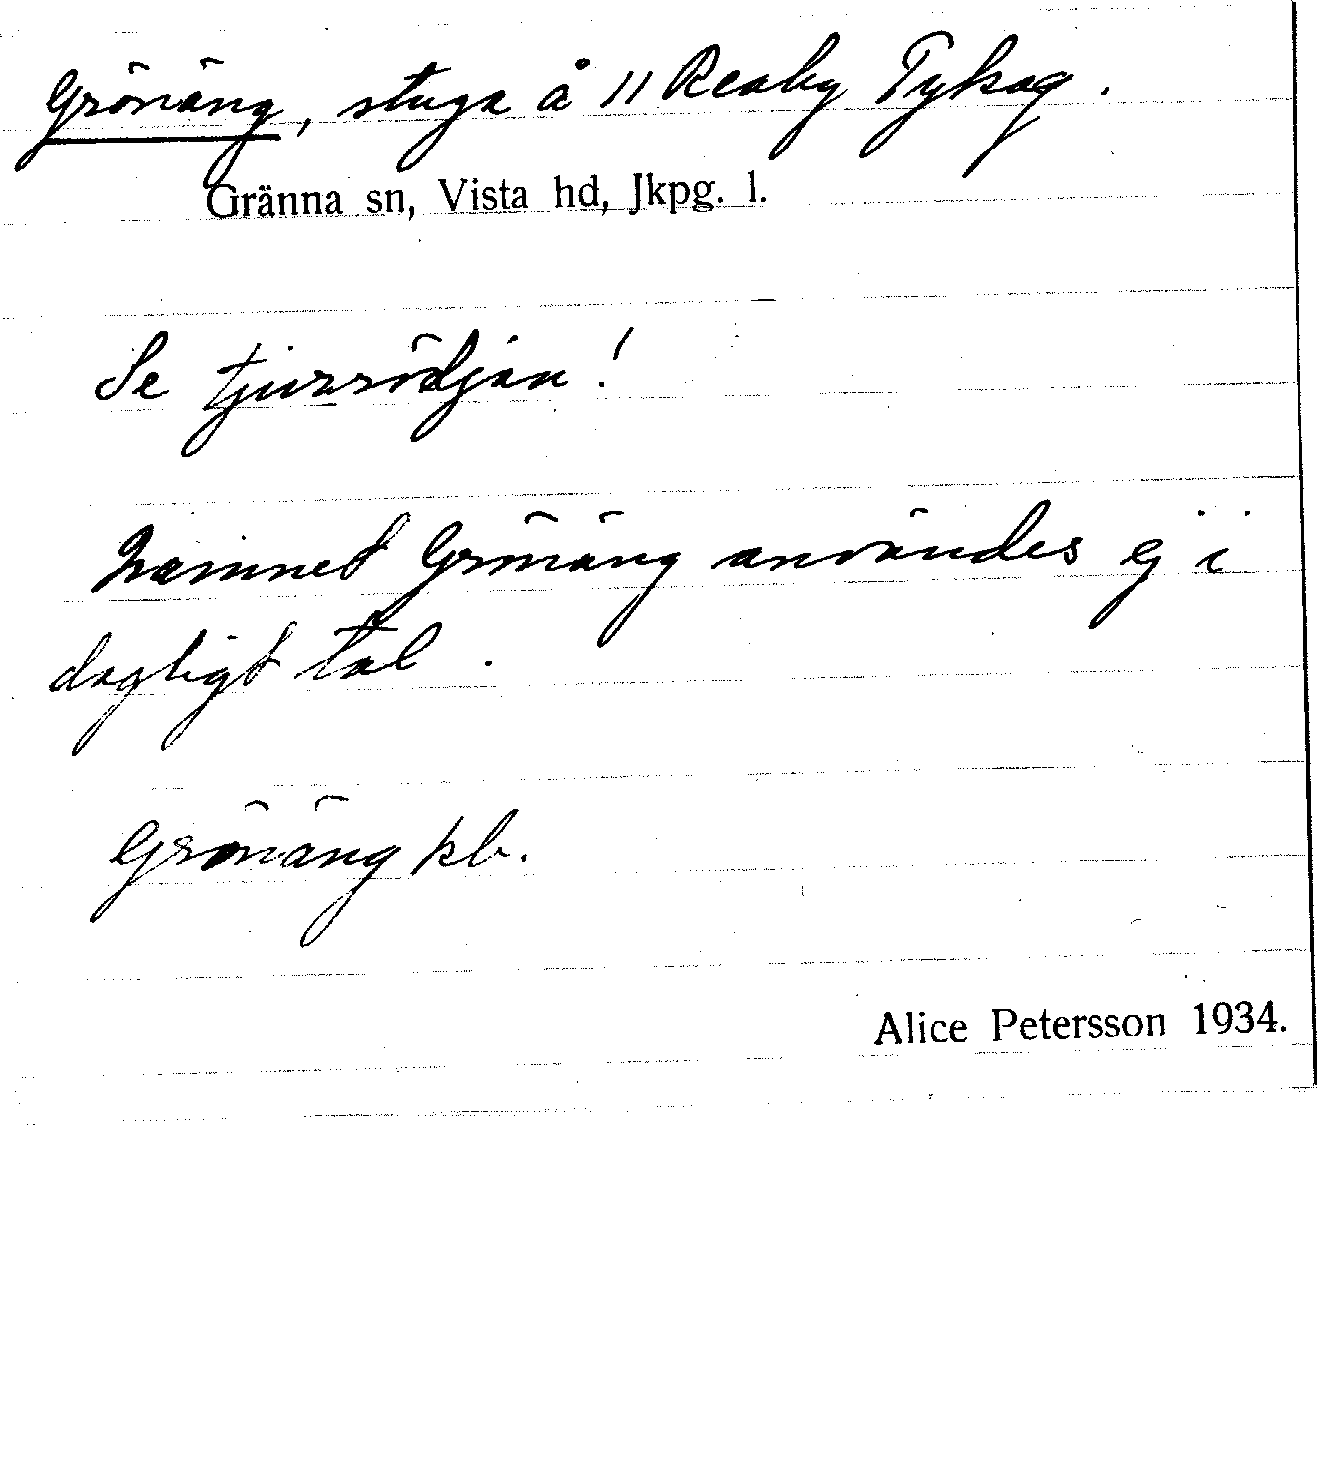 Grönäng, stuga å 11 Reaby Tykag.
Gränna sn, Vista hd, Jkpg. l.
Se tjurrödjan!
Namnet Grönäng användes ej i
dagligt tal.
Grönäng kb.
Alice Petersson 1934.